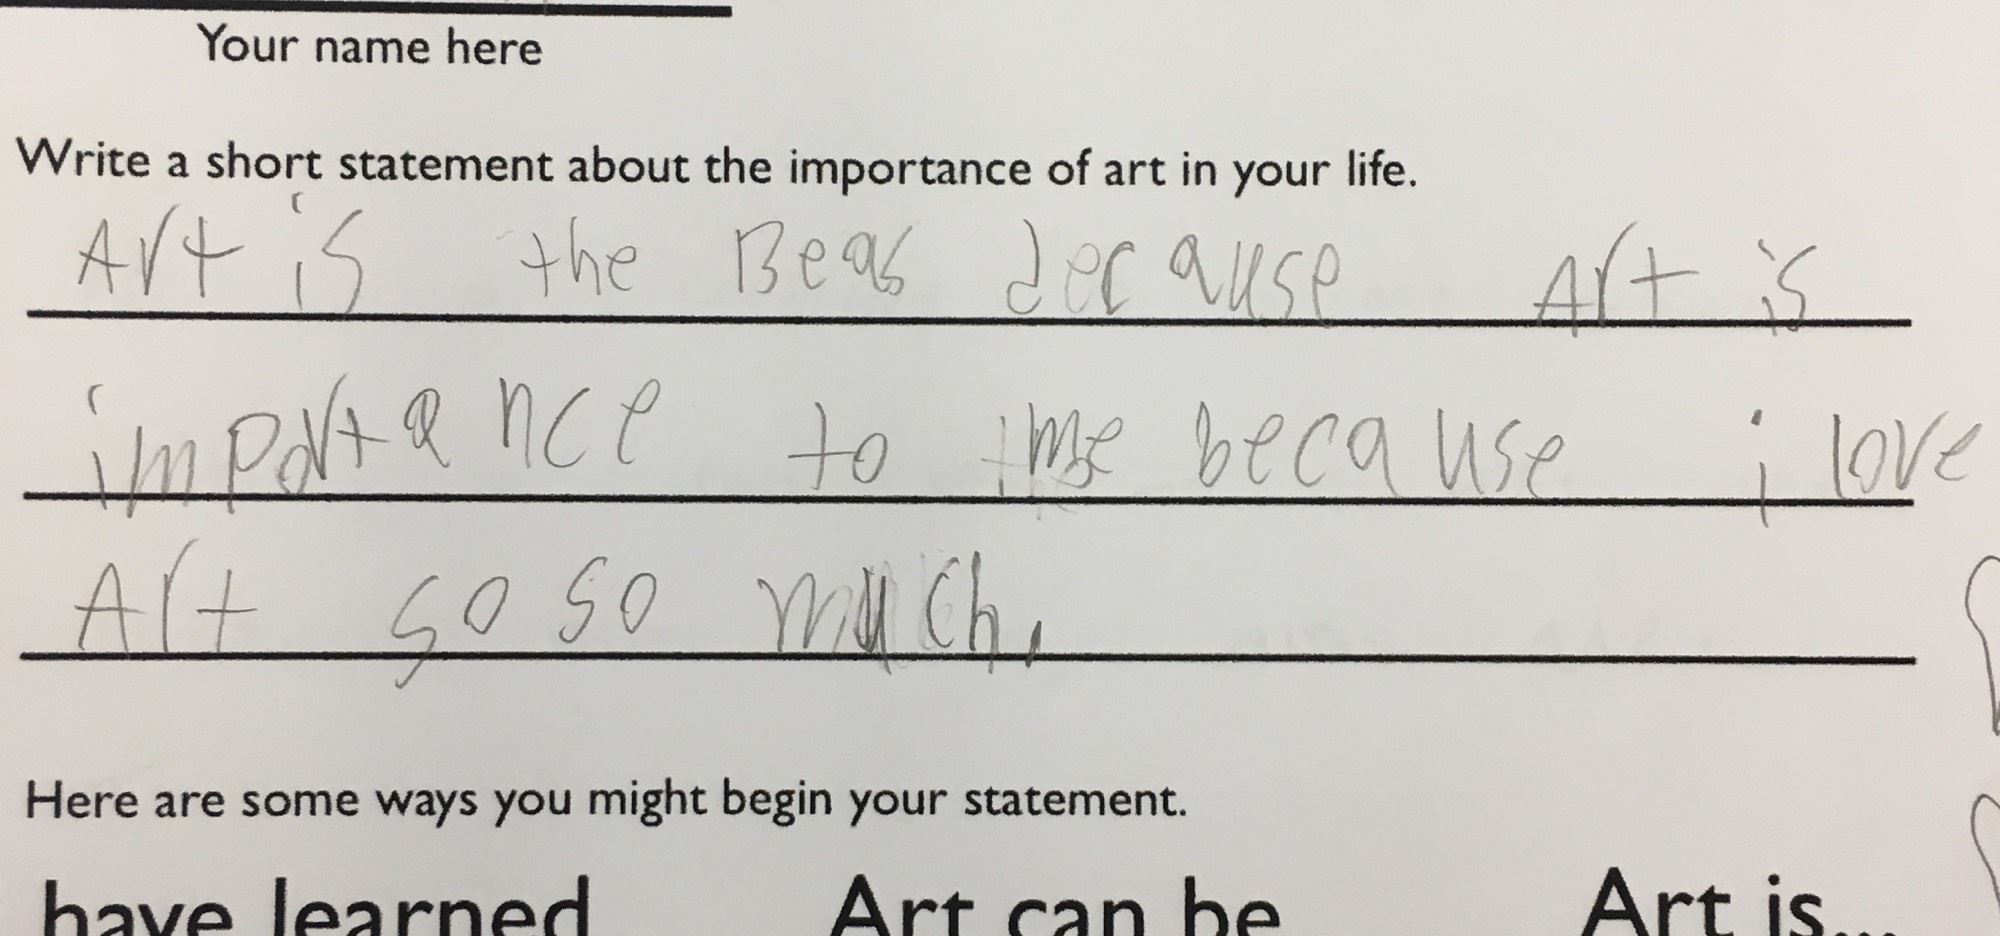 Your name here
Write a short statement about the importance of art in your life.
Art is the Beas decause Art is
importance to me because i love
Art so so much.
Here are some ways you might begin your statement.
have learned Art can be Art is...